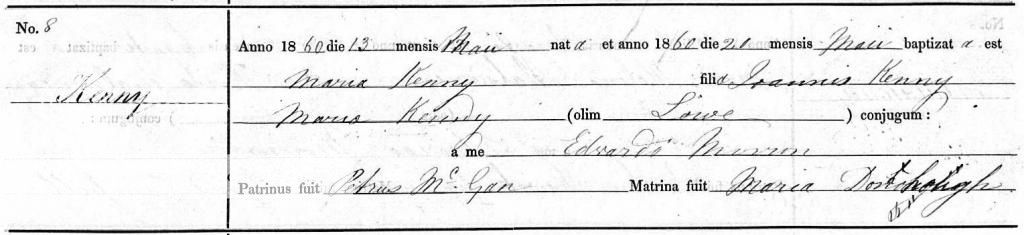 No. 8
Kenny
Anno 1860 die 13 mensis Maii nata et anno 1860 die 20 mensis Maii baptizata est
Maria Kenny filia Joannis Kenny
Maria Kenny (olim Lowe ) conjugum :
a me Edvardo
Patrinus fuit Petrus Mc. Gan Matrina fuit Maria